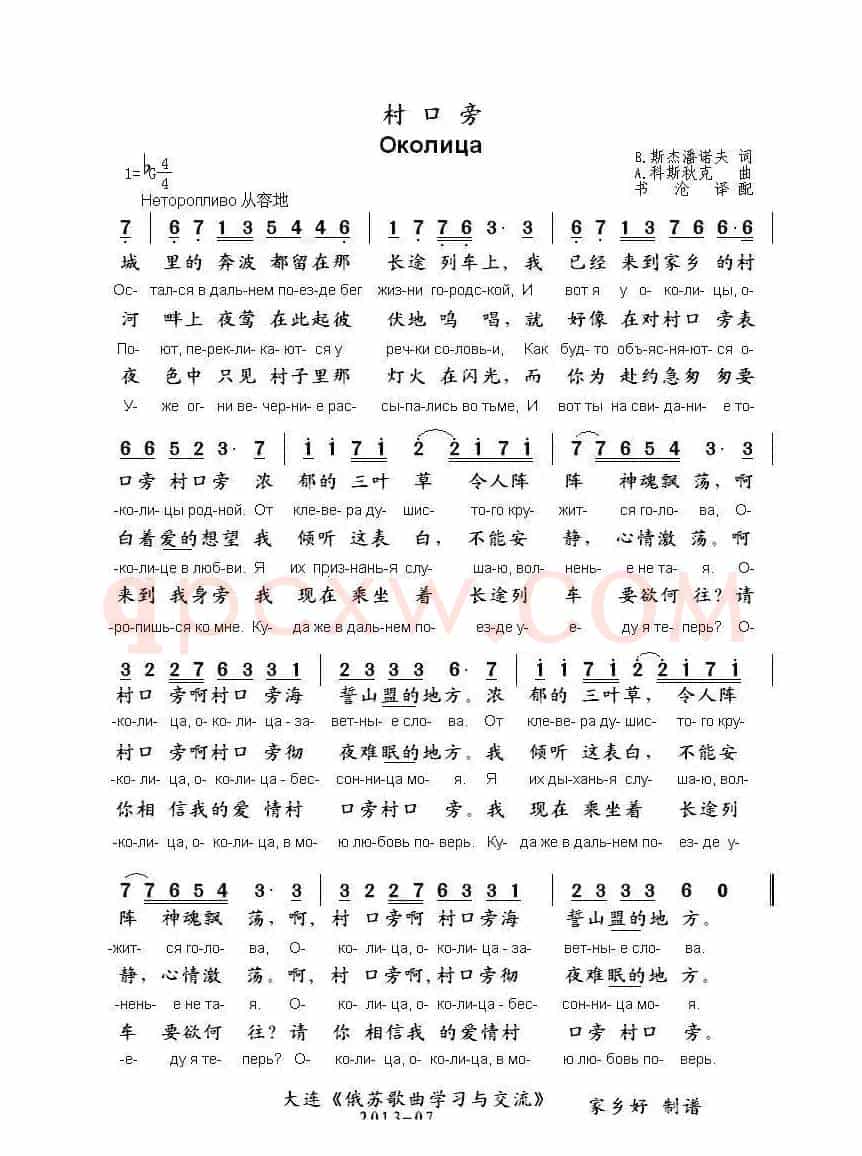 村口旁
Околица
1=♭G 4/4
В.斯杰潘诺夫 词
А.科斯秋克 曲
书沧 译配
Неторопливо 从容地
7 | 6 7 1 3 5 4 4 6 | 1 7 7 6 3· 3 | 6 7 1 3 7 6 6·6 |
城 里的 奔波 都留在那 长途 列车上，我 已经 来到家乡 的村
Ос- тал-ся в даль-нем по-ез-де бег жиз-ни го-род-ской, И вот я у о- ко-ли-цы, о-
河 畔上 夜莺 在此起彼 伏地 鸣 唱，就 好像 在对村口 旁表
По- ют, пе-рек-ли- ка-ют- ся у реч-ки со-ловь-и, Как буд-то объ-яс-ня-ют-ся о-
夜 色中 只见 村子里那 灯火 在闪光，而 你为 赴约急匆 匆要
У- же ог- ни ве-чер-ни-е рас- сы-па-лись во тьме, И вот ты на сви-да-ни-е то-
6 6 5 2 3· 7 | i i 7 i 2 2 i 7 i | 7 7 6 5 4 3· 3 |
口旁 村口旁 浓 郁的 三叶 草 令人阵 阵 神魂飘 荡，啊
-ко-ли-цы род-ной. От кле-ве-ра ду-шис- то-го кру- жит- ся го-ло- ва, О-
白着 爱的想望 我 倾听 这表 白，不能安 静，心情激 荡。啊
-ко-ли-це в люб-ви. Я их приз-нань-я слу- ша-ю, вол- нень- е не та- я. О-
来到 我身旁 我 现在 乘坐 着 长途列 车 要欲何 往？请
-ро-пишь-ся ко мне. Ку- да же в даль-нем по- ез-де у- е- ду я те- перь? О-
qpcxw.com
3 2 2 7 6 3 3 1 | 2 3 3 3 6· 7 | i i 7 i 2 2 i 7 i |
村口 旁啊村口 旁海 誓山盟的地方。浓 郁的 三叶草，令人阵
-ко-ли-ца, о-ко-ли-ца-за- вет-ны-е сло-ва. От кле-ве-ра ду-шис- то-го кру-
村口 旁啊村口 旁彻 夜难眠的地方。我 倾听 这表白，不能安
-ко-ли-ца, о-ко-ли-ца-бес- сон-ни-ца мо- я. Я их ды-хань-я слу- ша-ю, вол-
你相 信我的爱 情村 口旁村口 旁。我 现在 乘坐着 长途列
-ко-ли-ца, о-ко-ли-ца, в мо- ю лю-бовь по-верь. Ку- да же в даль-нем по- ез-де у-
7 7 6 5 4 3· 3 | 3 2 2 7 6 3 3 1 | 2 3 3 3 6 0 ‖
阵 神魂飘 荡，啊，村 口旁啊 村口旁海 誓山盟的地 方。
-жит- ся го-ло- ва, О- ко-ли-ца, о-ко-ли-ца-за- вет-ны-е сло- ва.
静，心情激 荡。啊，村 口旁啊，村口旁彻 夜难眠的地 方。
-нень- е не та- я. О- ко-ли-ца, о-ко-лица-бес- сон-ни-ца мо- я.
车 要欲何 往？请 你 相信我 的爱情村 口旁 村口 旁。
-е- ду я те- перь? О- ко-ли-ца, о-ко-ли-ца, в мо- ю лю-бовь по-верь.
大连《俄苏歌曲学习与交流》 家乡好 制谱
2013-07